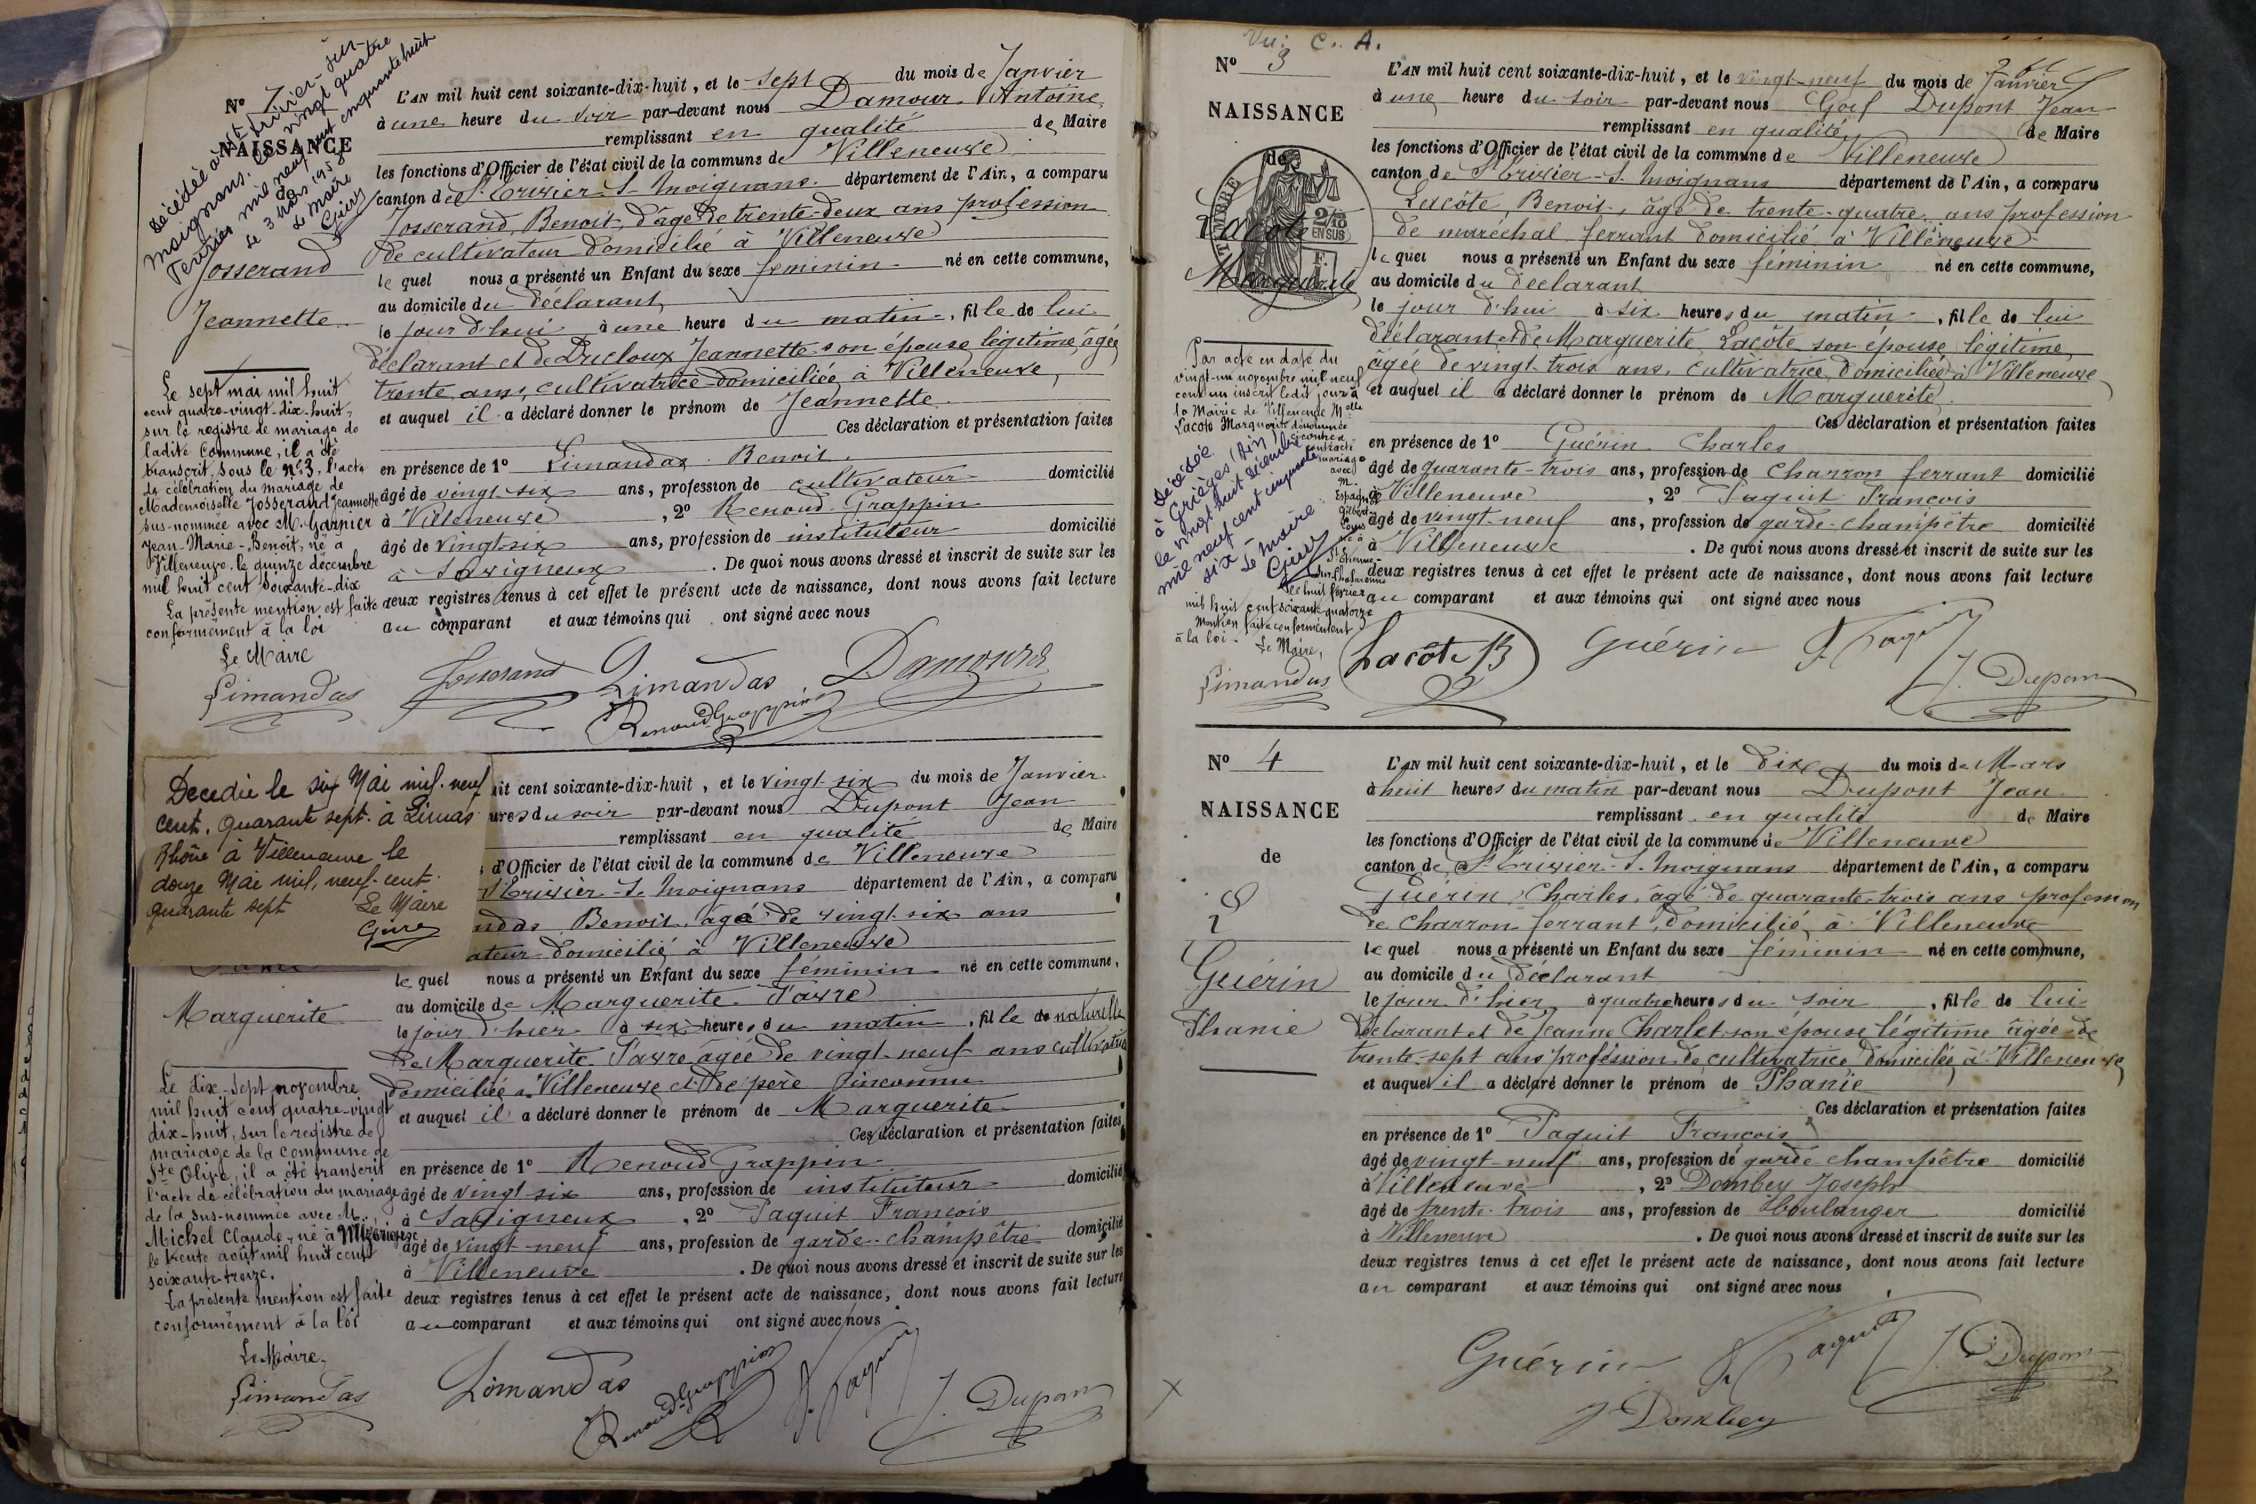 Nº 1
NAISSANCE
Josserand
Jeannette
L'AN mil huit cent soixante-dix-huit, et le sept du mois de Janvier
à une heure du soir par-devant nous Damour Antoine,
remplissant en qualité de Maire
les fonctions d'Officier de l'état civil de la commune de Villeneuve
canton de St Trivier-S-Moignans département de l'Ain, a comparu
Josserand, Benoit, âgé de trente-deux ans profession
de cultivateur domicilié à Villeneuve
lequel nous a présenté un Enfant du sexe féminin né en cette commune,
au domicile du déclarant
le jour d'hui à une heure du matin, fille de lui
déclarant et de Ducloux Jeannette son épouse légitime, âgée
trente ans, cultivatrice domiciliée à Villeneuve,
et auquel il a déclaré donner le prénom de Jeannette
Ces déclaration et présentation faites
en présence de 1º Limandas Benoit
âgé de vingt-six ans, profession de cultivateur domicilié
à Villeneuve, 2º Renoud-Grappin
âgé de vingt-six ans, profession de instituteur domicilié
à Savigneux. De quoi nous avons dressé et inscrit de suite sur les
deux registres tenus à cet effet le présent acte de naissance, dont nous avons fait lecture
au comparant et aux témoins qui ont signé avec nous
Josserand Limandas Damour
Renoud Grappin
Décédée à St Trivier-sur-
Moignans. le vingt quatre
Février mil neuf cent cinquante huit
le 3 Mars 1958
Le Maire
Le sept mai mil huit
cent quatre-vingt-dix-huit,
sur le registre de mariage de
ladite Commune, il a été
transcrit, sous le nº 3, l'acte
de célébration du mariage de
Mademoiselle Josserand Jeannette
sus-nommée avec M. Garnier
Jean-Marie-Benoît, né à
Villeneuve, le quinze décembre
mil huit cent soixante-dix
La présente mention est faite
conformément à la loi
Le Maire
Limandas
Décédée le six Mai mil-neuf
cent, quarante sept. à Limas
Rhône à Villeneuve le
douze Mai mil, neuf-cent.
quarante sept Le Maire
Marguerite
it cent soixante-dix-huit, et le vingt-six du mois de Janvier
ures du soir par-devant nous Dupont Jean
remplissant en qualité de Maire
s d'Officier de l'état civil de la commune de Villeneuve
St Trivier-S-Moignans département de l'Ain, a comparu
ndas Benoit, âgé de vingt-six ans
ateur domicilié à Villeneuve
lequel nous a présenté un Enfant du sexe féminin né en cette commune,
au domicile de Marguerite Favre
le jour d'hier à six heures du matin, fille de naturelle
de Marguerite Favre âgée de vingt-neuf ans cultivatrice
domiciliée à Villeneuve et de père inconnu
et auquel il a déclaré donner le prénom de Marguerite
Ces déclaration et présentation faites
en présence de 1º Renoud Grappin
âgé de vingt-six ans, profession de instituteur domicilié
à Savigneux, 2º Paquit François
âgé de vingt-neuf ans, profession de garde-champêtre domicilié
à Villeneuve. De quoi nous avons dressé et inscrit de suite sur les
deux registres tenus à cet effet le présent acte de naissance, dont nous avons fait lecture
au comparant et aux témoins qui ont signé avec nous
Limandas Renoud-Grappin F. Paquit J. Dupont
Le dix-sept novembre
mil huit cent quatre-vingt
dix-huit, sur le registre de
mariage de la commune de
Ste Olive, il a été transcrit
l'acte de célébration du mariage
de la sus-nommée avec M.
Michel Claude, né à Mizérieux
le trente août mil huit cent
soixante-treize.
La présente mention est faite
conformément à la loi
Le Maire,
Limandas
Vu: C. A.
Nº 3
NAISSANCE
de
TIMBRE
2/10 EN SUS
Lacôte
Marguerite
L'AN mil huit cent soixante-dix-huit, et le vingt-neuf du mois de Janvier
à une heure du soir par-devant nous Dupont Jean
remplissant en qualité de Maire
les fonctions d'Officier de l'état civil de la commune de Villeneuve
canton de St Trivier-S-Moignans département de l'Ain, a comparu
Lacôte, Benoit, âgé de trente-quatre ans profession
de maréchal ferrant domicilié à Villeneuve
lequel nous a présenté un Enfant du sexe féminin né en cette commune,
au domicile du déclarant
le jour d'hui à six heures du matin, fille de lui
déclarant et de Marguerite Lacôte son épouse légitime,
âgée de vingt-trois ans, cultivatrice, domiciliée à Villeneuve
et auquel il a déclaré donner le prénom de Marguerite
Ces déclaration et présentation faites
en présence de 1º Guérin Charles
âgé de quarante-trois ans, profession de charron ferrant domicilié
à Villeneuve, 2º Paquit François
âgé de vingt-neuf ans, profession de garde-champêtre domicilié
à Villeneuve. De quoi nous avons dressé et inscrit de suite sur les
deux registres tenus à cet effet le présent acte de naissance, dont nous avons fait lecture
au comparant et aux témoins qui ont signé avec nous
Lacôte B Guérin F. Paquit J. Dupont
Par acte en date du
vingt-un novembre mil neuf
cent un inscrit ledit jour à
la Mairie de Villeneuve Melle
Lacôte Marguerite dénommée
ci-contre a
contracté
mariage
avec
M.
Espagnon
Gilbert
Louis
né à
St
Etienne
sur-Chalaronne
le huit février
mil huit cent soixante-quatorze
Mention faite conformément
à la loi. Le Maire,
Limandas
Décédée
à Grièges (Ain)
le vingt huit décembre
mil neuf cent cinquante
six - Le Maire
Nº 4
NAISSANCE
de
Guérin
Phanie
L'AN mil huit cent soixante-dix-huit, et le dix du mois de Mars
à huit heures du matin par-devant nous Dupont Jean
remplissant en qualité de Maire
les fonctions d'Officier de l'état civil de la commune de Villeneuve
canton de St Trivier-S-Moignans département de l'Ain, a comparu
Guérin, Charles, âgé de quarante-trois ans profession
de charron ferrant, domicilié à Villeneuve
lequel nous a présenté un Enfant du sexe féminin né en cette commune,
au domicile du déclarant
le jour d'hier à quatre heures du soir, fille de lui
déclarant et de Jeanne Charlet son épouse légitime âgée de
trente-sept ans profession de cultivatrice domiciliée à Villeneuve
et auquel il a déclaré donner le prénom de Phanie
Ces déclaration et présentation faites
en présence de 1º Paquit François
âgé de vingt-neuf ans, profession de garde champêtre domicilié
à Villeneuve, 2º Dombey Joseph
âgé de trente-trois ans, profession de boulanger domicilié
à Villeneuve. De quoi nous avons dressé et inscrit de suite sur les
deux registres tenus à cet effet le présent acte de naissance, dont nous avons fait lecture
au comparant et aux témoins qui ont signé avec nous
Guérin F. Paquit J. Dupont
J Dombey